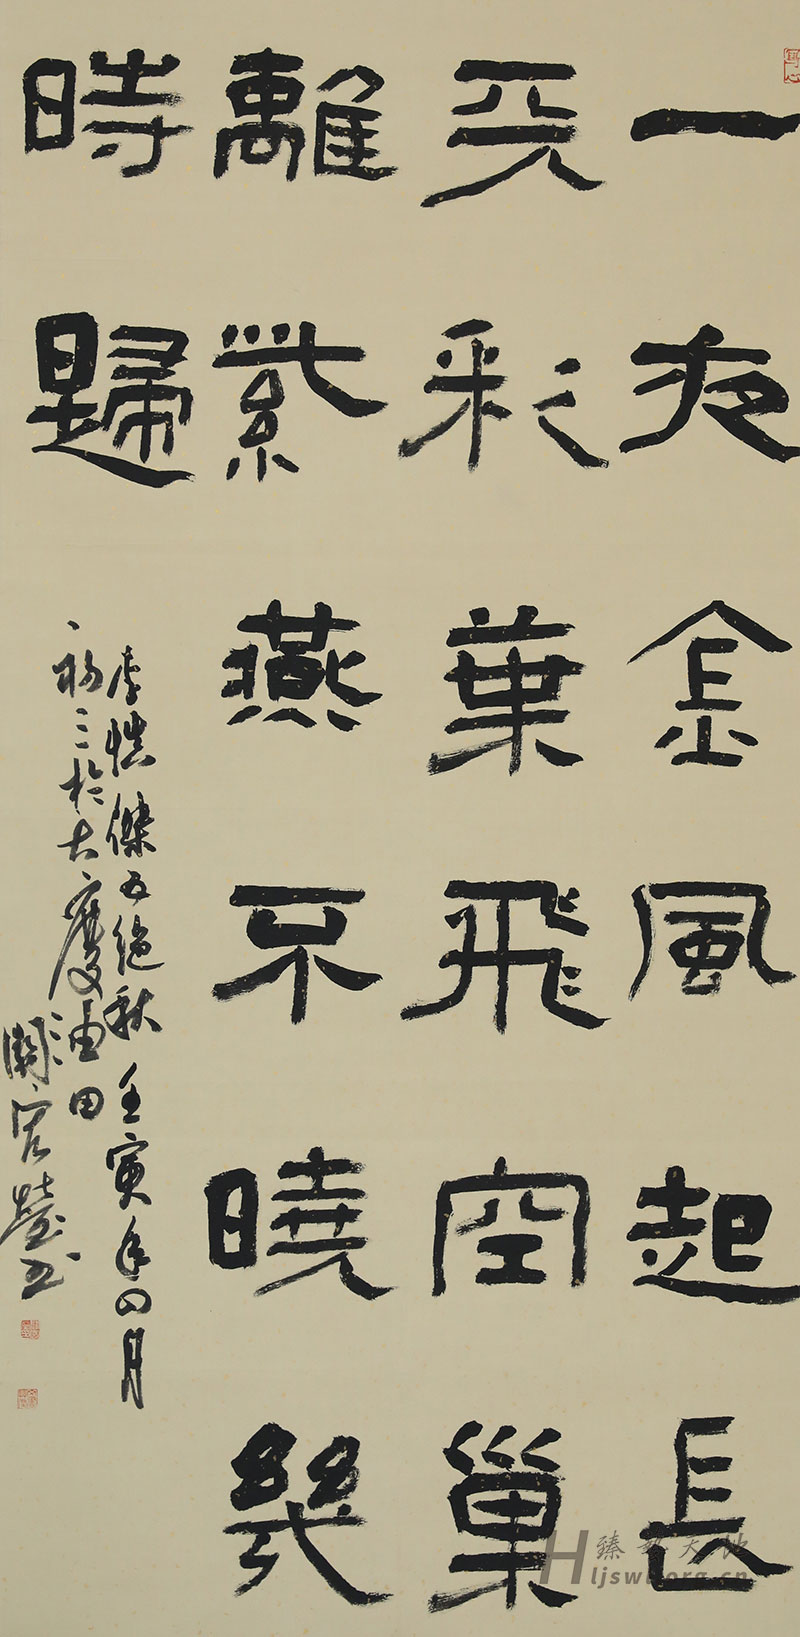 一夜金風起長
天彩葉飛空巢
離紫燕不曉幾
時歸
李慎傑五絕秋 壬寅年四月
初三於大慶油田
關宏 書
天地
Hljswb.org.cn